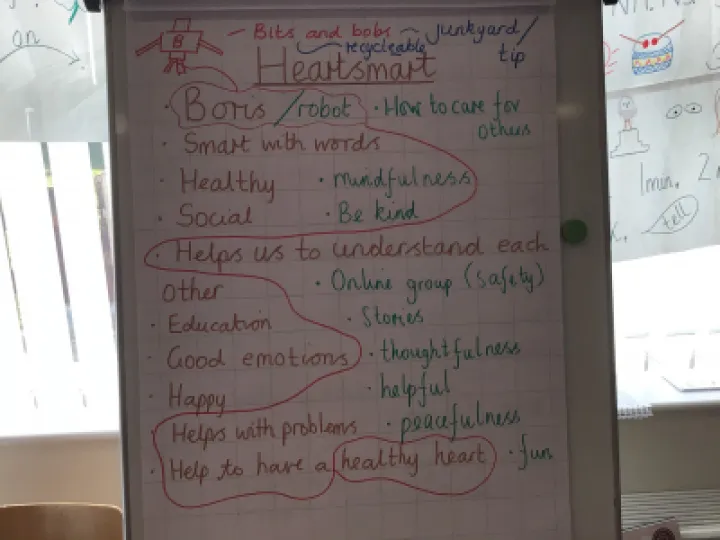 on
B
– Bits and bobs – junkyard/
recycleable tip
Heartsmart
· Boris /robot · How to care for
others
· Smart with words
· Healthy · mindfulness
· Social · Be kind
· Helps us to understand each
other · Online group (safety)
· Education · Stories
· Good emotions · thoughtfulness
· Happy · helpful
Helps with problems · peacefulness
· Help to have a healthy heart · fun
1min,
tell